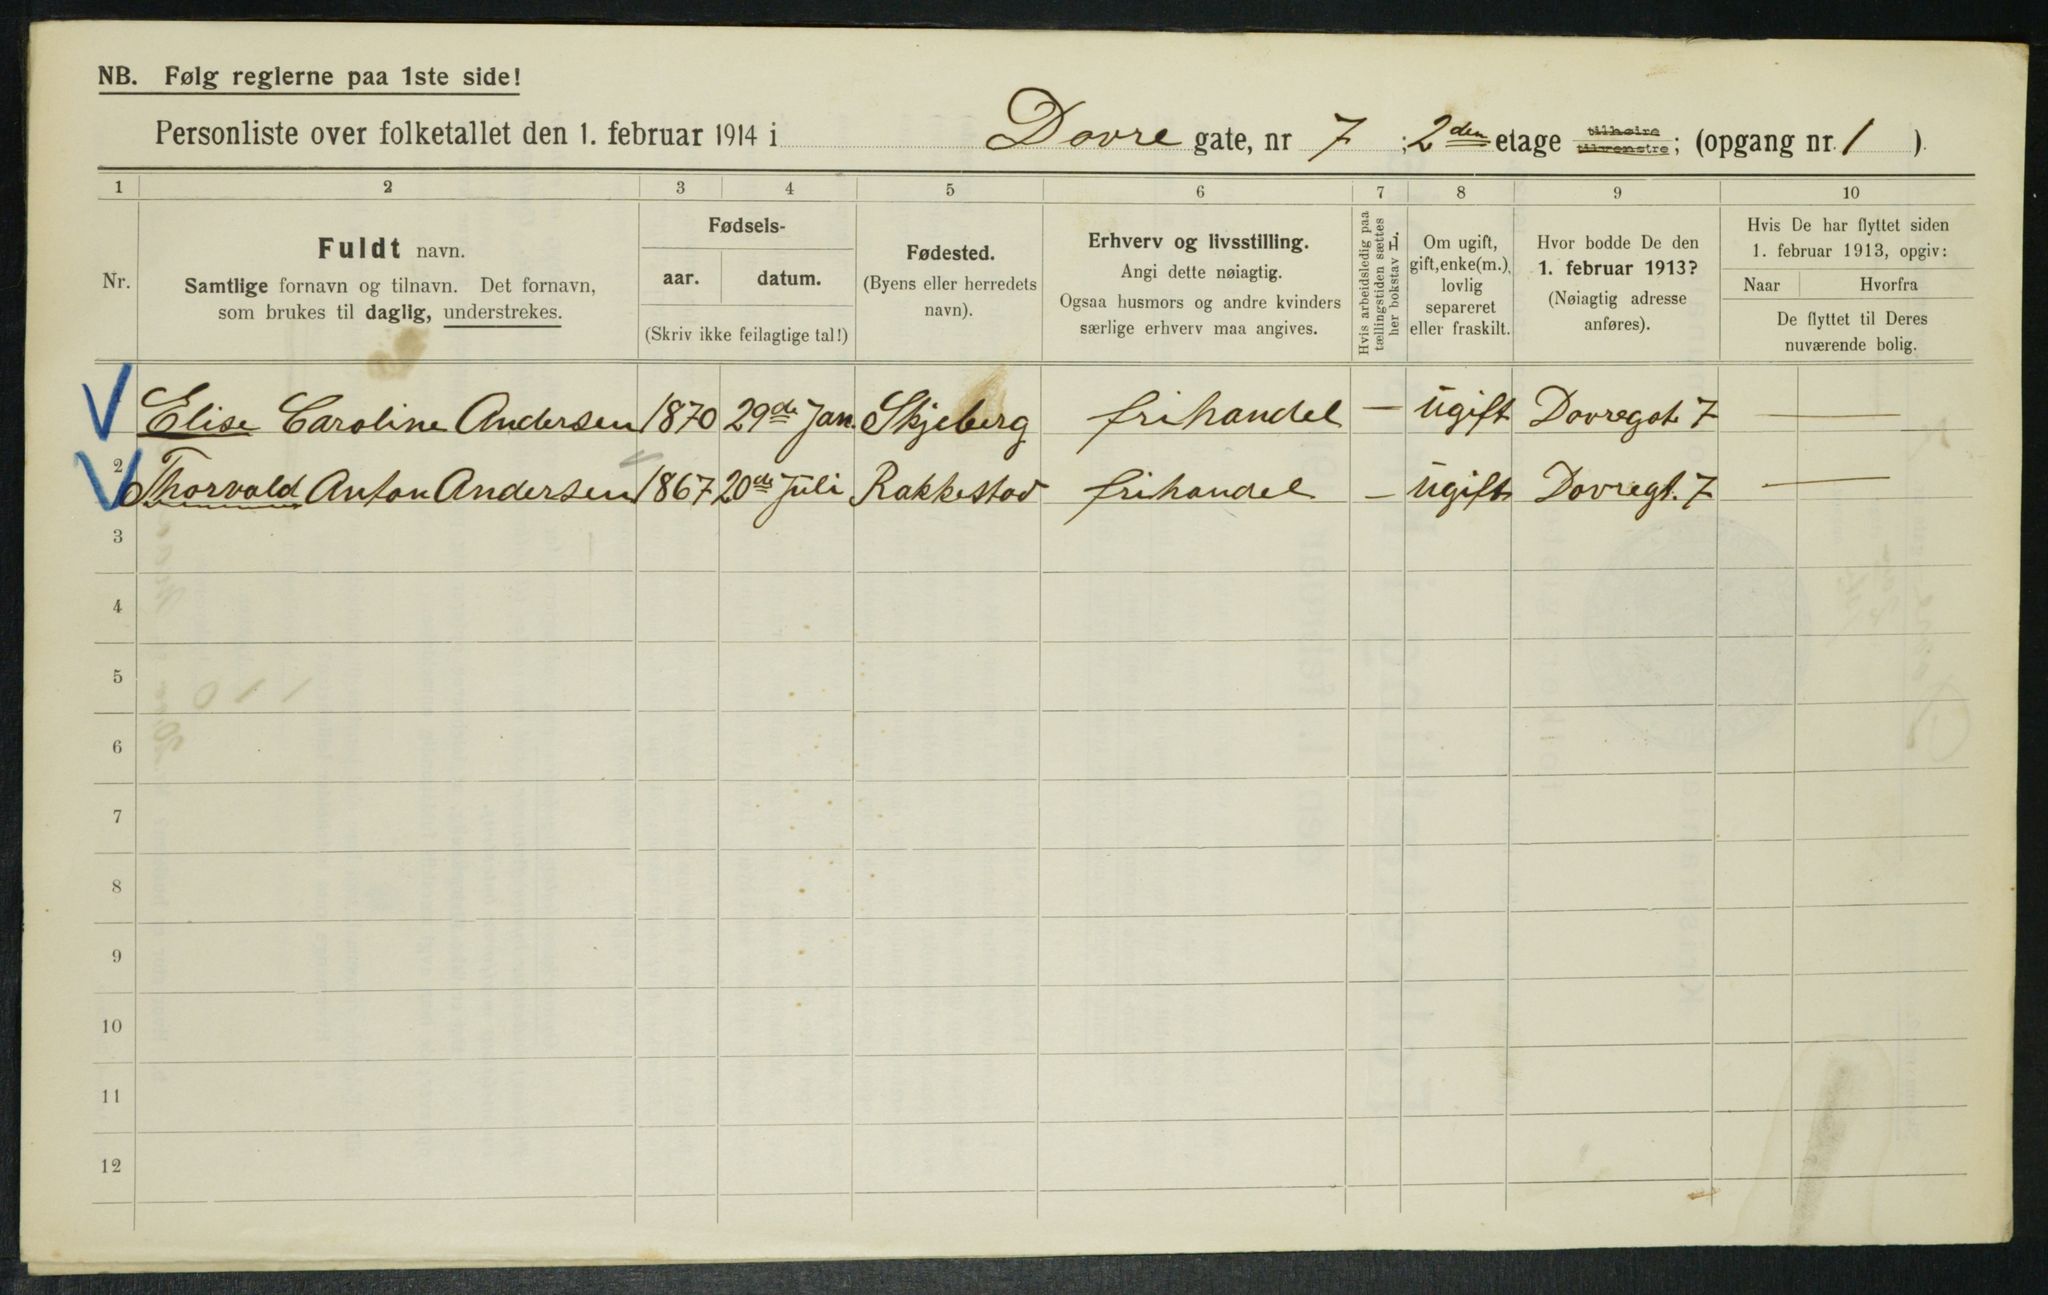 NB. Følg reglerne paa 1ste side!
Personliste over folketallet den 1. februar 1914 i Dovre gate, nr 7 ; 2den etage tilhøire tilvenstre; (opgang nr. 1 ).
1 2 3 4 5 6 7 8 9 10
Nr.
Fuldt navn.
Samtlige fornavn og tilnavn. Det fornavn,
som brukes til daglig, understrekes.
Fødsels-
aar. datum.
(Skriv ikke feilagtige tal!)
Fødested.
(Byens eller herredets
navn).
Erhverv og livsstilling.
Angi dette nøiagtig.
Ogsaa husmors og andre kvinders
særlige erhverv maa angives.
Hvis arbeidsledig paa
tællingstiden sættes
her bokstav L.
Om ugift,
gift, enke(m.),
lovlig
separeret
eller fraskilt.
Hvor bodde De den
1. februar 1913?
(Nøiagtig adresse
anføres).
Hvis De har flyttet siden
1. februar 1913, opgiv:
Naar Hvorfra
De flyttet til Deres
nuværende bolig.
V Elise Caroline Andersen 1870 29de Jan. Skjeberg frihandel — ugift Dovregt. 7 —
V 2 Thorvald Anton Andersen 1867 20de Juli Rakkestad frihandel — ugift Dovregt. 7 —
3
4
5
6
7
8
9
10
11
12